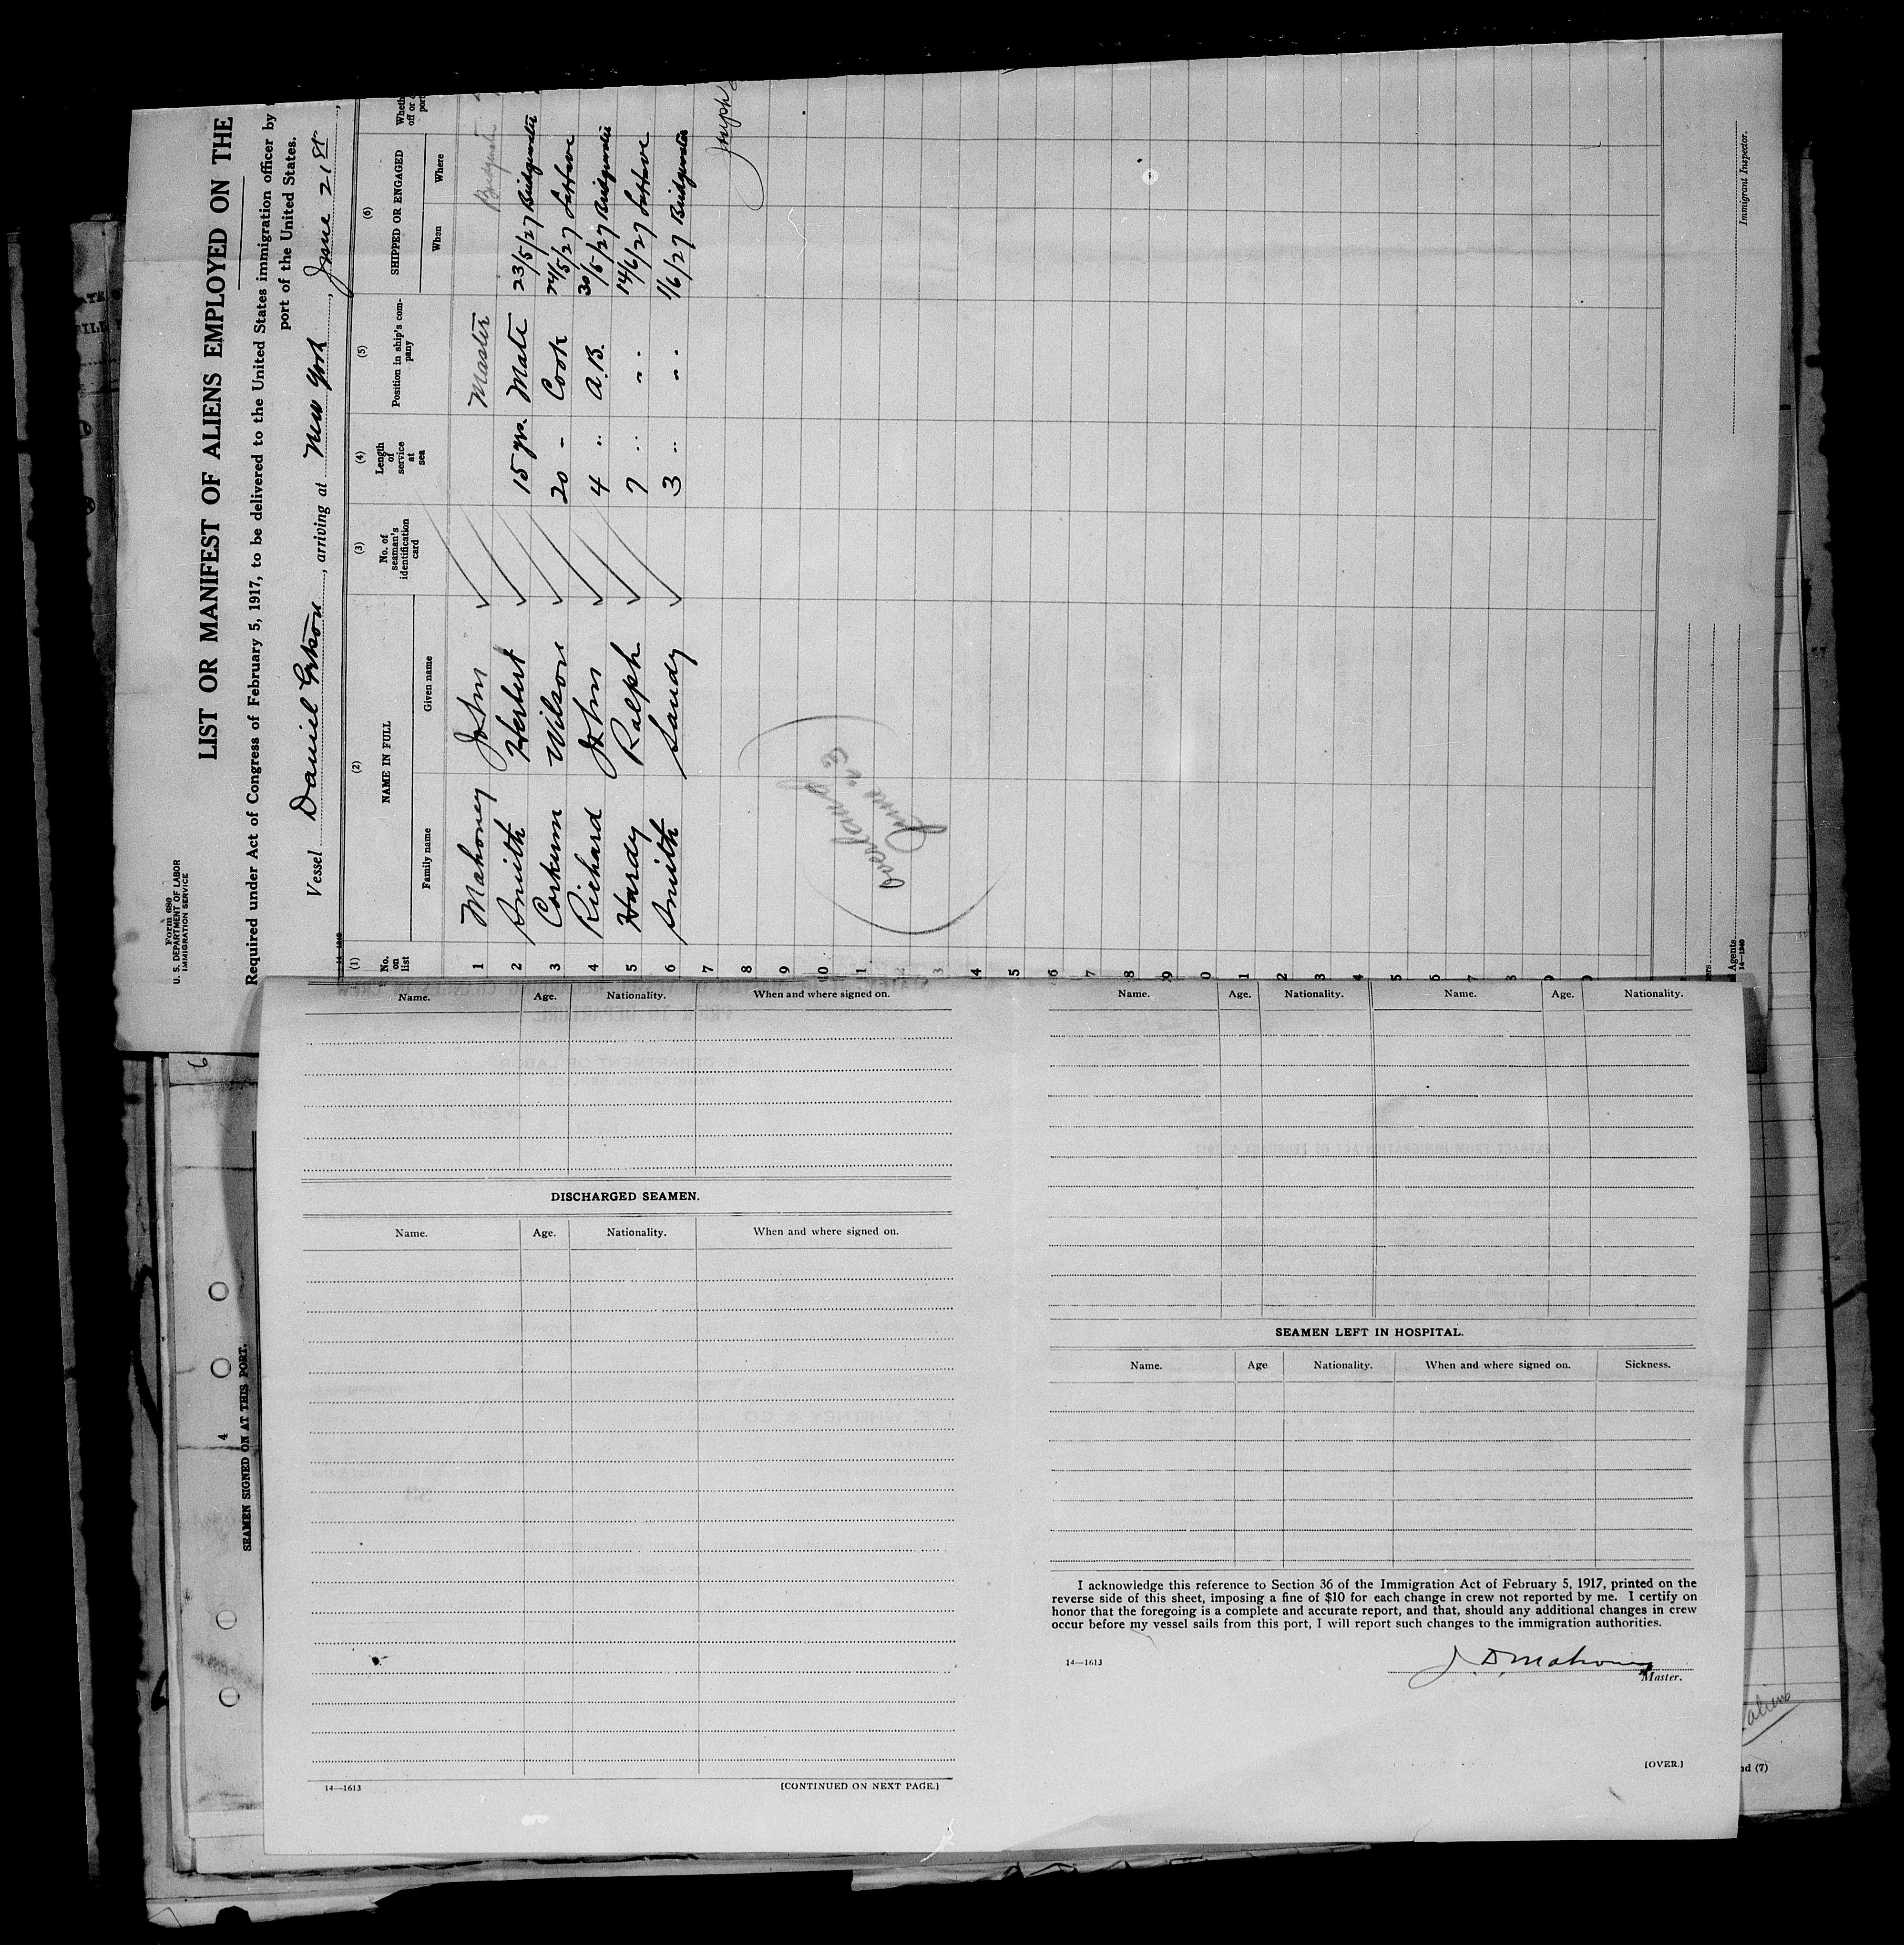 Form 680
U. S. DEPARTMENT OF LABOR
IMMIGRATION SERVICE
LIST OR MANIFEST OF ALIENS EMPLOYED ON THE
Required under Act of Congress of February 5, 1917, to be delivered to the United States immigration officer by
port of the United States.
Vessel Daniel , arriving at New York , June 21st ,
14-1240
(1) (2) (3) (4) (5) (6)
No. on list NAME IN FULL No. of seaman's identification card Length of service at sea Position in ship's company SHIPPED OR ENGAGED
Family name Given name When Where
1 Mahoney John Master Bridgewater
2 Smith Herbert 15 yrs. Mate 23/5/27 Bridgewater
3 Corkum Wilson 20 - Cook 24/5/27 LaHave
4 Richard John 4 " A.B. 30/5/27 Bridgewater
5 Hardy Ralph 7 " " 14/6/27 LaHave
6 Smith Sandy 3 " " 1/6/27 Bridgewater
7 Joseph
8
9
10
June 23
Immigrant Inspector.
Agents
14-1240
Name. Age. Nationality. When and where signed on.
DISCHARGED SEAMEN.
Name. Age. Nationality. When and where signed on.
14—1613 [CONTINUED ON NEXT PAGE.]
Name. Age. Nationality. Name. Age. Nationality.
SEAMEN LEFT IN HOSPITAL.
Name. Age Nationality. When and where signed on. Sickness.
I acknowledge this reference to Section 36 of the Immigration Act of February 5, 1917, printed on the
reverse side of this sheet, imposing a fine of $10 for each change in crew not reported by me. I certify on
honor that the foregoing is a complete and accurate report, and that, should any additional changes in crew
occur before my vessel sails from this port, I will report such changes to the immigration authorities.
J. D. Mahoney
14—1613 Master.
[OVER.]
4
SEAMEN SIGNED ON AT THIS PORT.
aliens
nd (7)